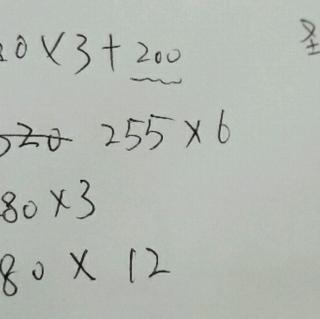 20×3+200
320 255×6
80×3
80×12